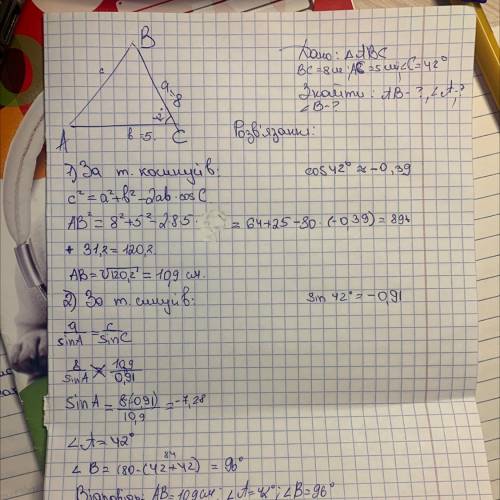 B
c
a=8
42°
A
b=5
C
Дано: ΔABC
BC=8см; AC=5см; ∠C=42°
Знайти: AB-?, ∠A-?
∠B-?
Розв'язання:
1) За т. косинусів:
cos42° ≈ -0,39
c² = a² + b² - 2ab · cosC
AB² = 8² + 5² - 2·8·5 · = 64+25-80 · (-0,39) = 89+
+ 31,2 = 120,2
AB = √120,2 = 10,9 см.
2) За т. синусів:
sin 42° = -0,91
a/sinA = c/sinC
8/sinA = 10,9/0,91
sinA = 8·(-0,91)/10,9 = -7,28
∠A = 42°
84
∠B = 180 - (42+42) = 96°
Відповідь: AB=10,9см; ∠A=42°; ∠B=96°